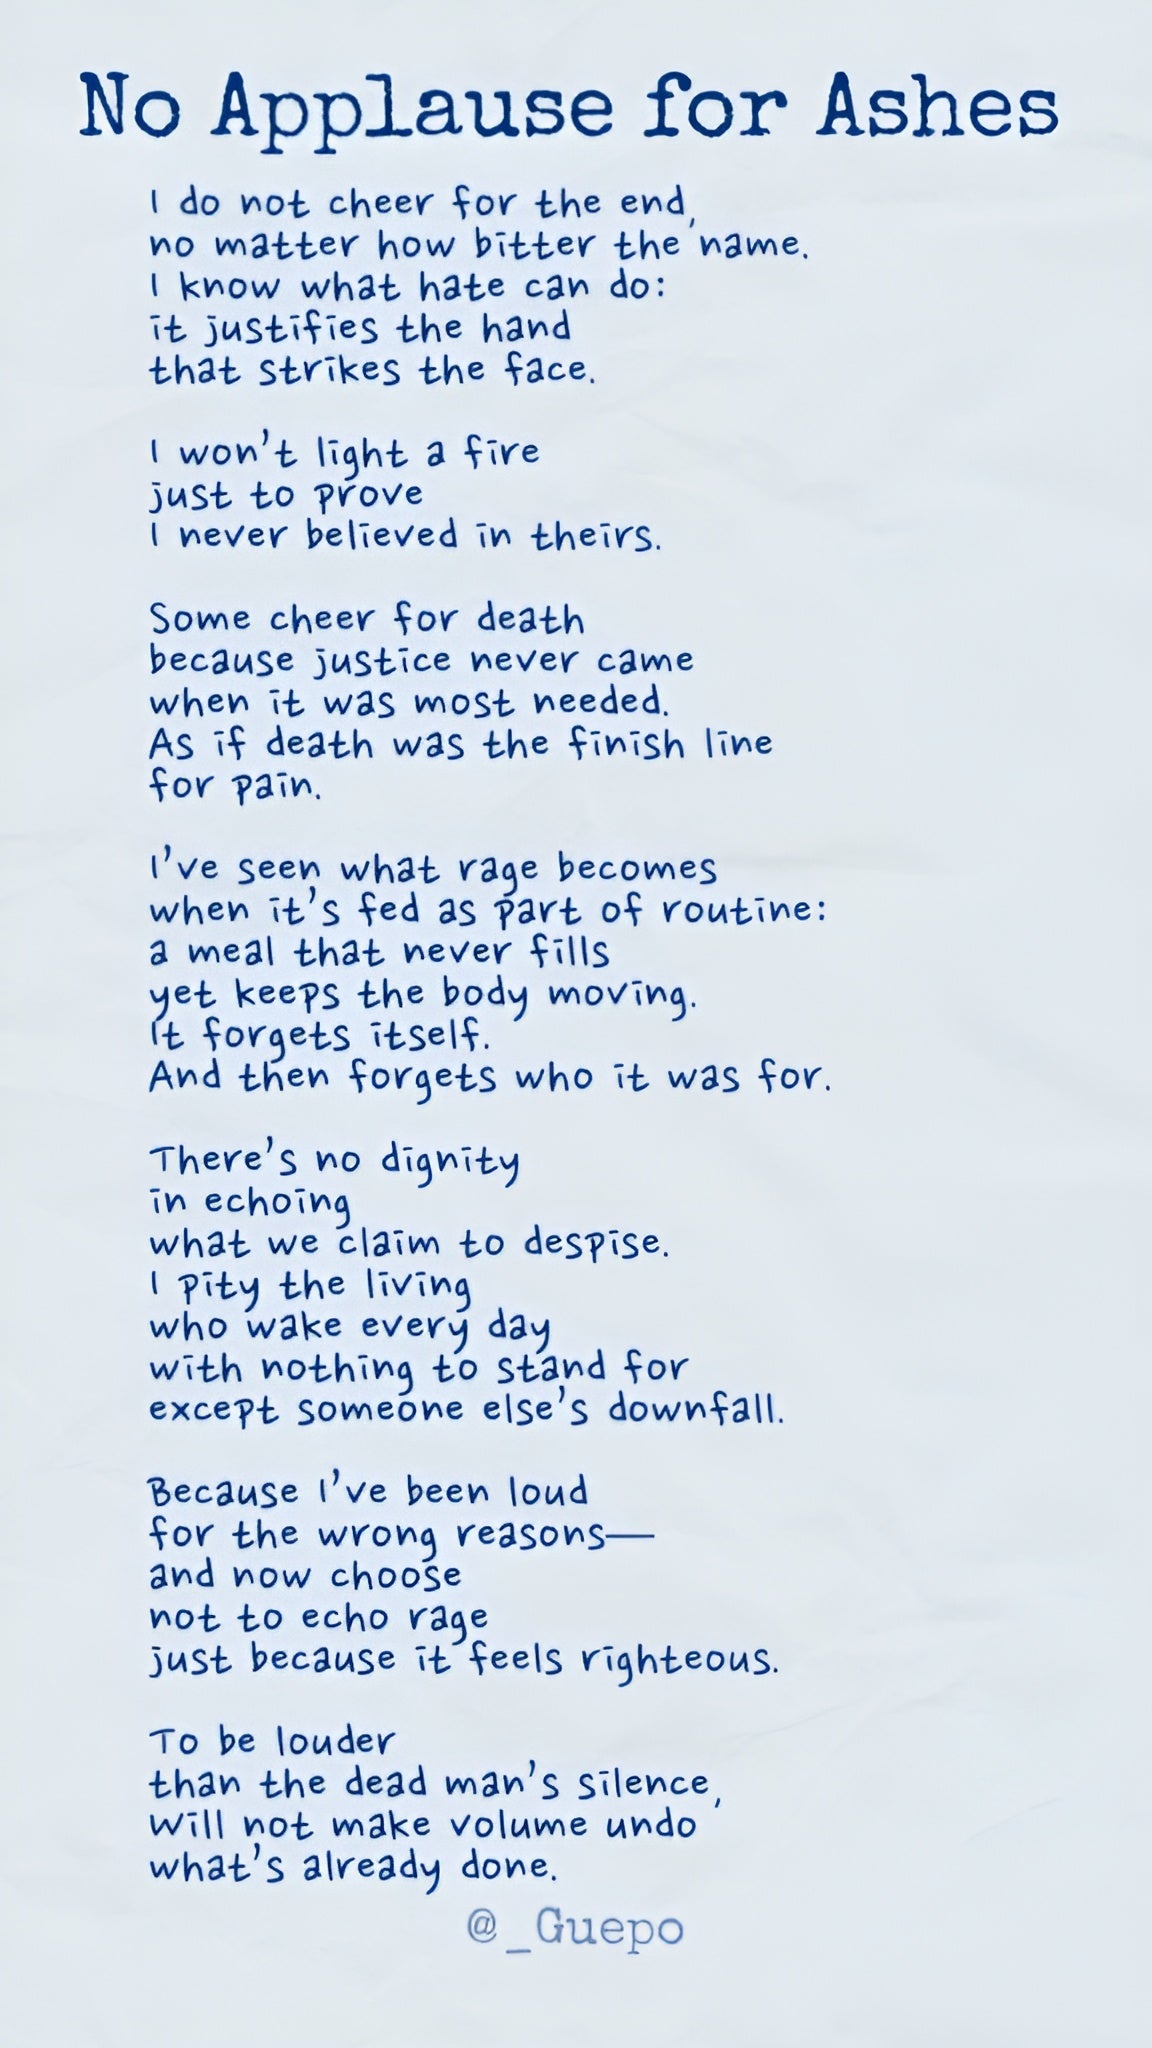 No Applause for Ashes
I do not cheer for the end,
no matter how bitter the name.
I know what hate can do:
it justifies the hand
that strikes the face.
I won't light a fire
just to prove
I never believed in theirs.
Some cheer for death
because justice never came
when it was most needed.
As if death was the finish line
for pain.
I've seen what rage becomes
when it's fed as part of routine:
a meal that never fills
yet keeps the body moving.
It forgets itself.
And then forgets who it was for.
There's no dignity
in echoing
what we claim to despise.
I pity the living
who wake every day
with nothing to stand for
except someone else's downfall.
Because I've been loud
for the wrong reasons—
and now choose
not to echo rage
just because it feels righteous.
To be louder
than the dead man's silence,
Will not make volume undo
what's already done.
@_Guepo